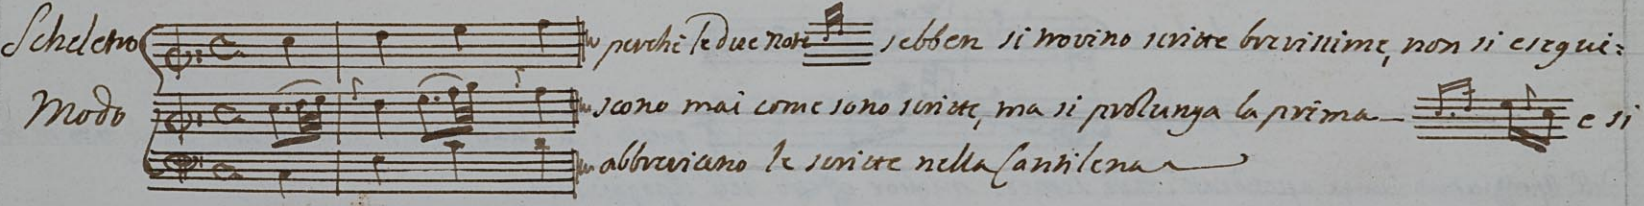 Scheletro perchè le due note sebben si trovino scritte brevissime, non si esegui=
Modo scono mai come sono scritte, ma si prolunga la prima e si
abbreviano le scritte nella Cantilena